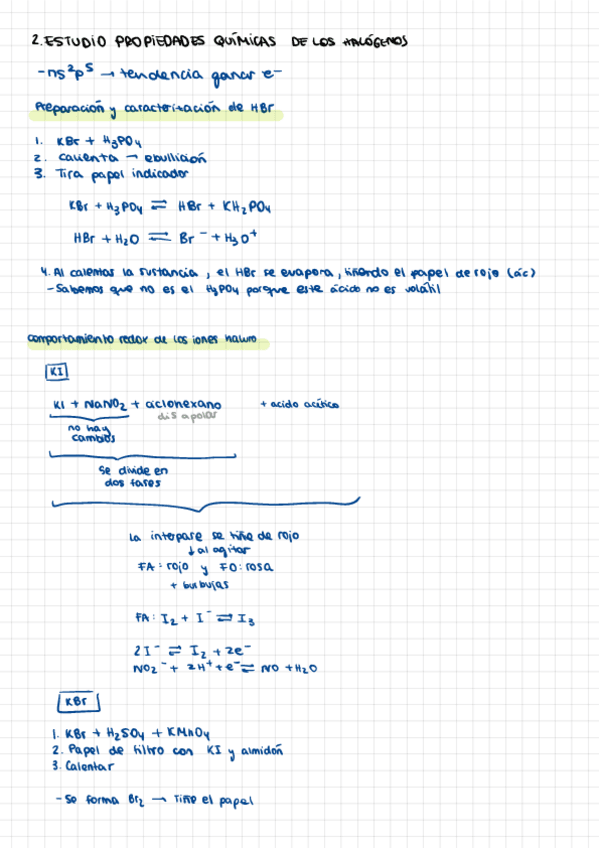 2. ESTUDIO PROPIEDADES QUÍMICAS DE LOS HALÓGENOS
-ns²p⁵ → tendencia ganar e⁻
Preparación y caracterización de HBr
1. KBr + H₃PO₄
2. Calienta → ebullición
3. Tira papel indicador
KBr + H₃PO₄ ⇌ HBr + KH₂PO₄
HBr + H₂O ⇌ Br⁻ + H₃O⁺
4. Al calentar la sustancia, el HBr se evapora, tiñendo el papel de rojo (ác)
- Sabemos que no es el H₃PO₄ porque este ácido no es volátil
comportamiento redox de los iones haluro
KI
KI + NaNO₂ + ciclohexano + acido acético
dis apolar
no hay
cambios
Se divide en
dos fases
La interfase se tiñe de rojo
↓ al agitar
FA: rojo y FO: rosa
+ burbujas
FA: I₂ + I⁻ ⇌ I₃
2I⁻ ⇌ I₂ + 2e⁻
NO₂⁻ + 2H⁺ + e⁻ ⇌ NO + H₂O
KBr
1. KBr + H₂SO₄ + KMnO₄
2. Papel de filtro con KI y almidón
3. Calentar
- Se forma Br₂ → Tiñe el papel